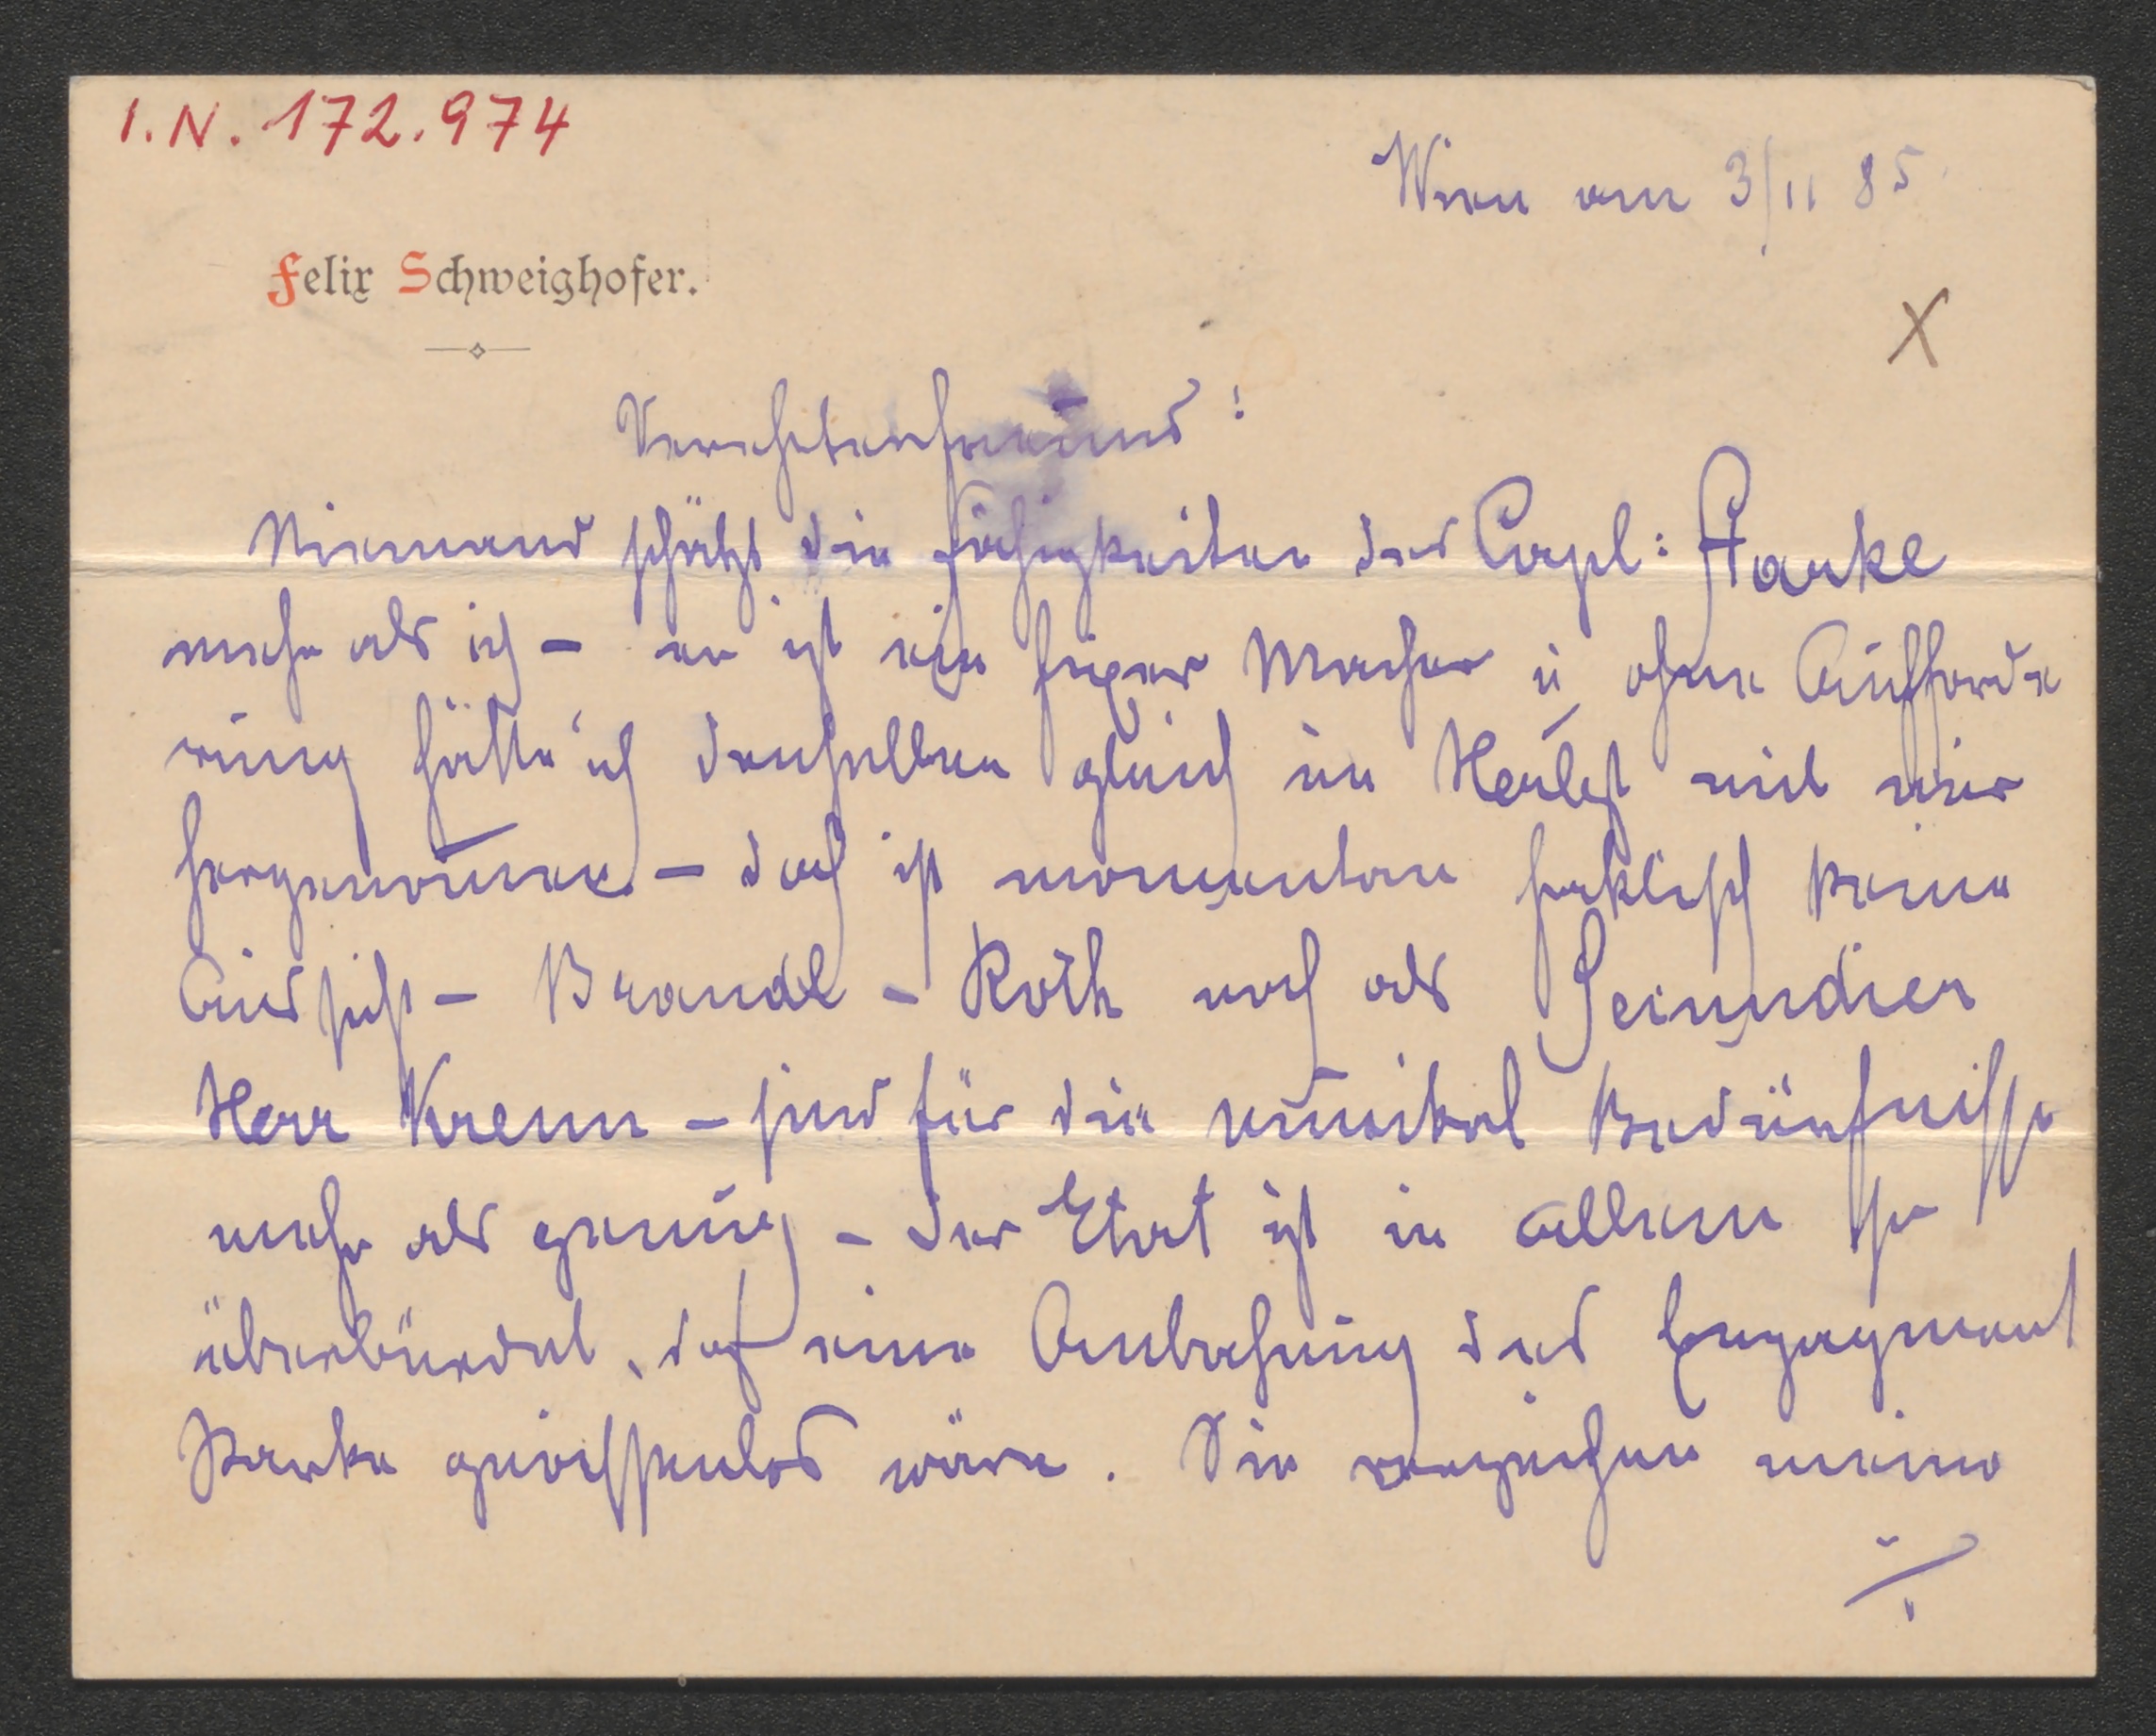 I.N. 172.974
Wien am 3/11 85
Felix Schweighofer.
X
Verehrterfreund:
Niemand schätzt die Fähigkeiten des Capl: Stanke
mehr als ich – er ist ein fixer Macher u ohne Aufforde
rung hätte ich denselben gleich im Herbst mit mir
hergenom̄en – doch ist momentan faktisch keine
Aussicht – Brandl – Roth noch als
Herr Krenn – sind für die musikal Bedürfnisse
mehr als genug – der Etat ist in allem so
überbürdet, daß eine Anbahnung des Engagment
Stanke gewissenlos wäre. Sie verzeihen meine
./.